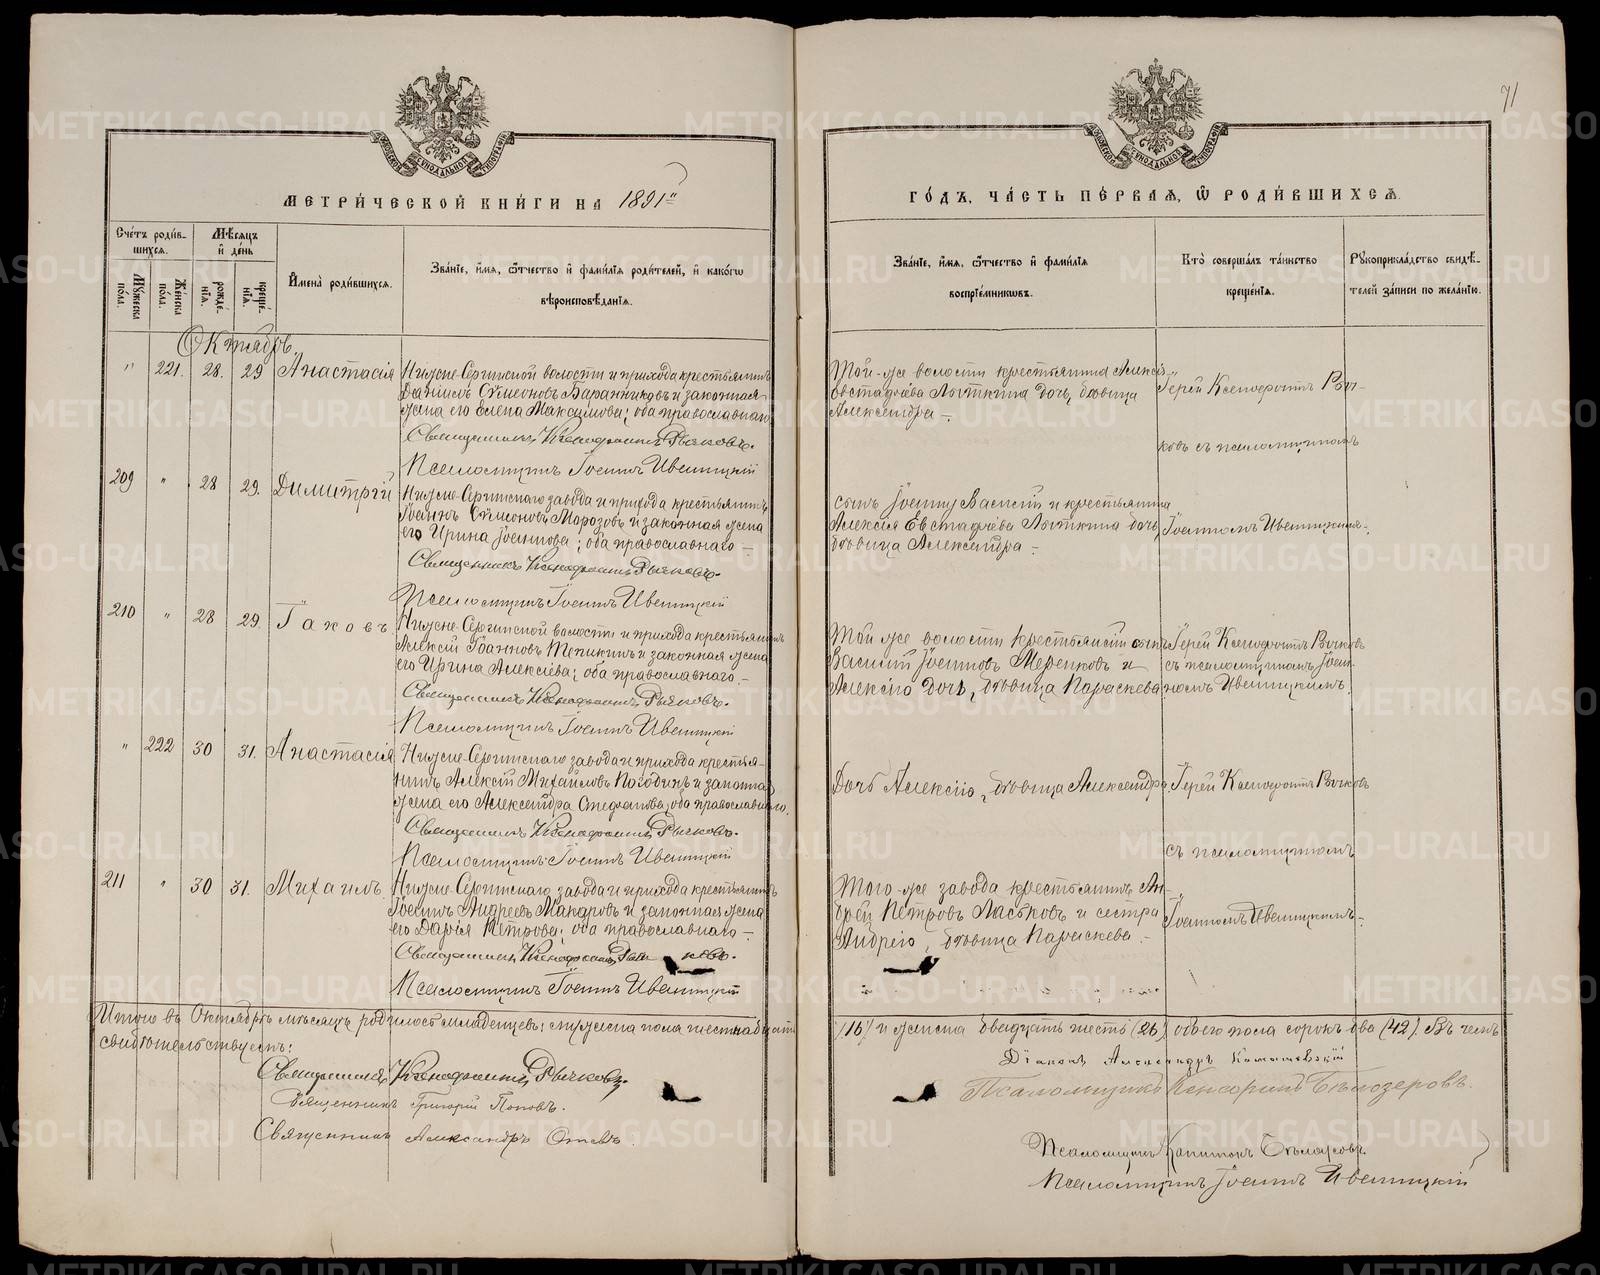 71
МЕТРИ́ЧЕСКОЙ КНИ́ГИ НА 1891й
ГО́ДЪ, ЧА́СТЬ ПЕ́РВАЯ, Ѡ РОДИ́ВШИХСЯ.
Сче́тъ роди́в-
шихся.
Му́жеска пола.
Же́нска по́ла.
Мѣ́сяцъ
и де́нь
рожде́-
нія.
креще́-
нія.
Имена̀ роди́вшихся.
Зва́ніе, и́мя, ѻ́тчество и фами́лія роди́телей, и како́гѡ
вѣроисповѣ́данія.
Зва́ніе, и́мя, ѻ́тчество и фами́лія
воспріе́мниковъ.
Кто̀ соверша́лъ та́инство
креще́нія.
Рукоприкла́дство свидѣ́-
телей за́писи по жела́нію.
Октябрь.
" 221. 28. 29 Анастасія
Нижне-Сергинской волости и прихода крестьянинъ
Даніилъ Сѵмеоновъ Баранниковъ и законная
жена его Елена Максимова; оба православнаго
Священникъ Ксенофонтъ Рычковъ.
Псаломщикъ Іоаннъ Ивеницкій
Той-же волости крестьянина Алексія
Евстафіева Лыткина дочь, дѣвица
Александра
Іерей Ксенофонтъ Рыч-
ковъ съ псаломщикомъ
209 " 28 29. Димитрій
Нижне-Сергинскаго завода и прихода крестьянинъ
Іоаннъ Сѵмеоновъ Морозовъ и законная жена
его Ирина Іоаннова; оба православнаго
Священникъ Ксенофонтъ Рычковъ.
Псаломщикъ Іоаннъ Ивеницкій
сынъ Іоанну Василій и крестьянина
Алексія Евстафіева Лыткина дочь,
дѣвица Александра
Іоанномъ Ивеницкимъ.
210 " 28 29. Іаковъ
Нижне-Сергинской волости и прихода крестьянинъ
Алексій Іоанновъ Тепикинъ и законная жена
его Ирина Алексіева; оба православнаго.
Священникъ Ксенофонтъ Рычковъ.
Псаломщикъ Іоаннъ Ивеницкій
Той же волости крестьянскій сынъ
Василій Іоанновъ Меренковъ и
Алексію дочь, дѣвица Параскева
Іерей Ксенофонтъ Рычковъ
съ псаломщикомъ Іоан-
номъ Ивеницкимъ.
" 222 30 31. Анастасія
Нижне-Сергинскаго завода и прихода крестья-
нинъ Алексій Михайловъ Погодинъ и законная
жена его Александра Стефанова; оба православнаго.
Священникъ Ксенофонтъ Рычковъ.
Псаломщикъ Іоаннъ Ивеницкій
Дочь Алексію, дѣвица Александра
Іерей Ксенофонтъ Рычковъ
съ псаломщикомъ
211 " 30 31. Михаилъ
Нижне-Сергинскаго завода и прихода крестьянинъ
Іоаннъ Андреевъ Макаровъ и законная жена
его Дарія Петрова; оба православнаго
Священникъ Ксенофонтъ Рычковъ.
Псаломщикъ Іоаннъ Ивеницкій
Того-же завода крестьянинъ Ан-
дрей Петровъ Ласьковъ и сестра
Андрею, дѣвица Параскева.
Іоанномъ Ивеницкимъ.
Итого въ Октябрѣ мѣсяцѣ родилось младенцевъ: мужеска пола шестнадцать
(16) и женска двадцать шесть (26) обоего пола сорокъ два (42). Въ чемъ
свидѣтельствуемъ:
Священникъ Ксенофонтъ Рычковъ
Священникъ Григорій Поповъ.
Священникъ Александръ
Діаконъ Александръ
Псаломщикъ Кенсоринъ Бѣлозеровъ.
Псаломщикъ Капитонъ
Псаломщикъ Іоаннъ Ивеницкій